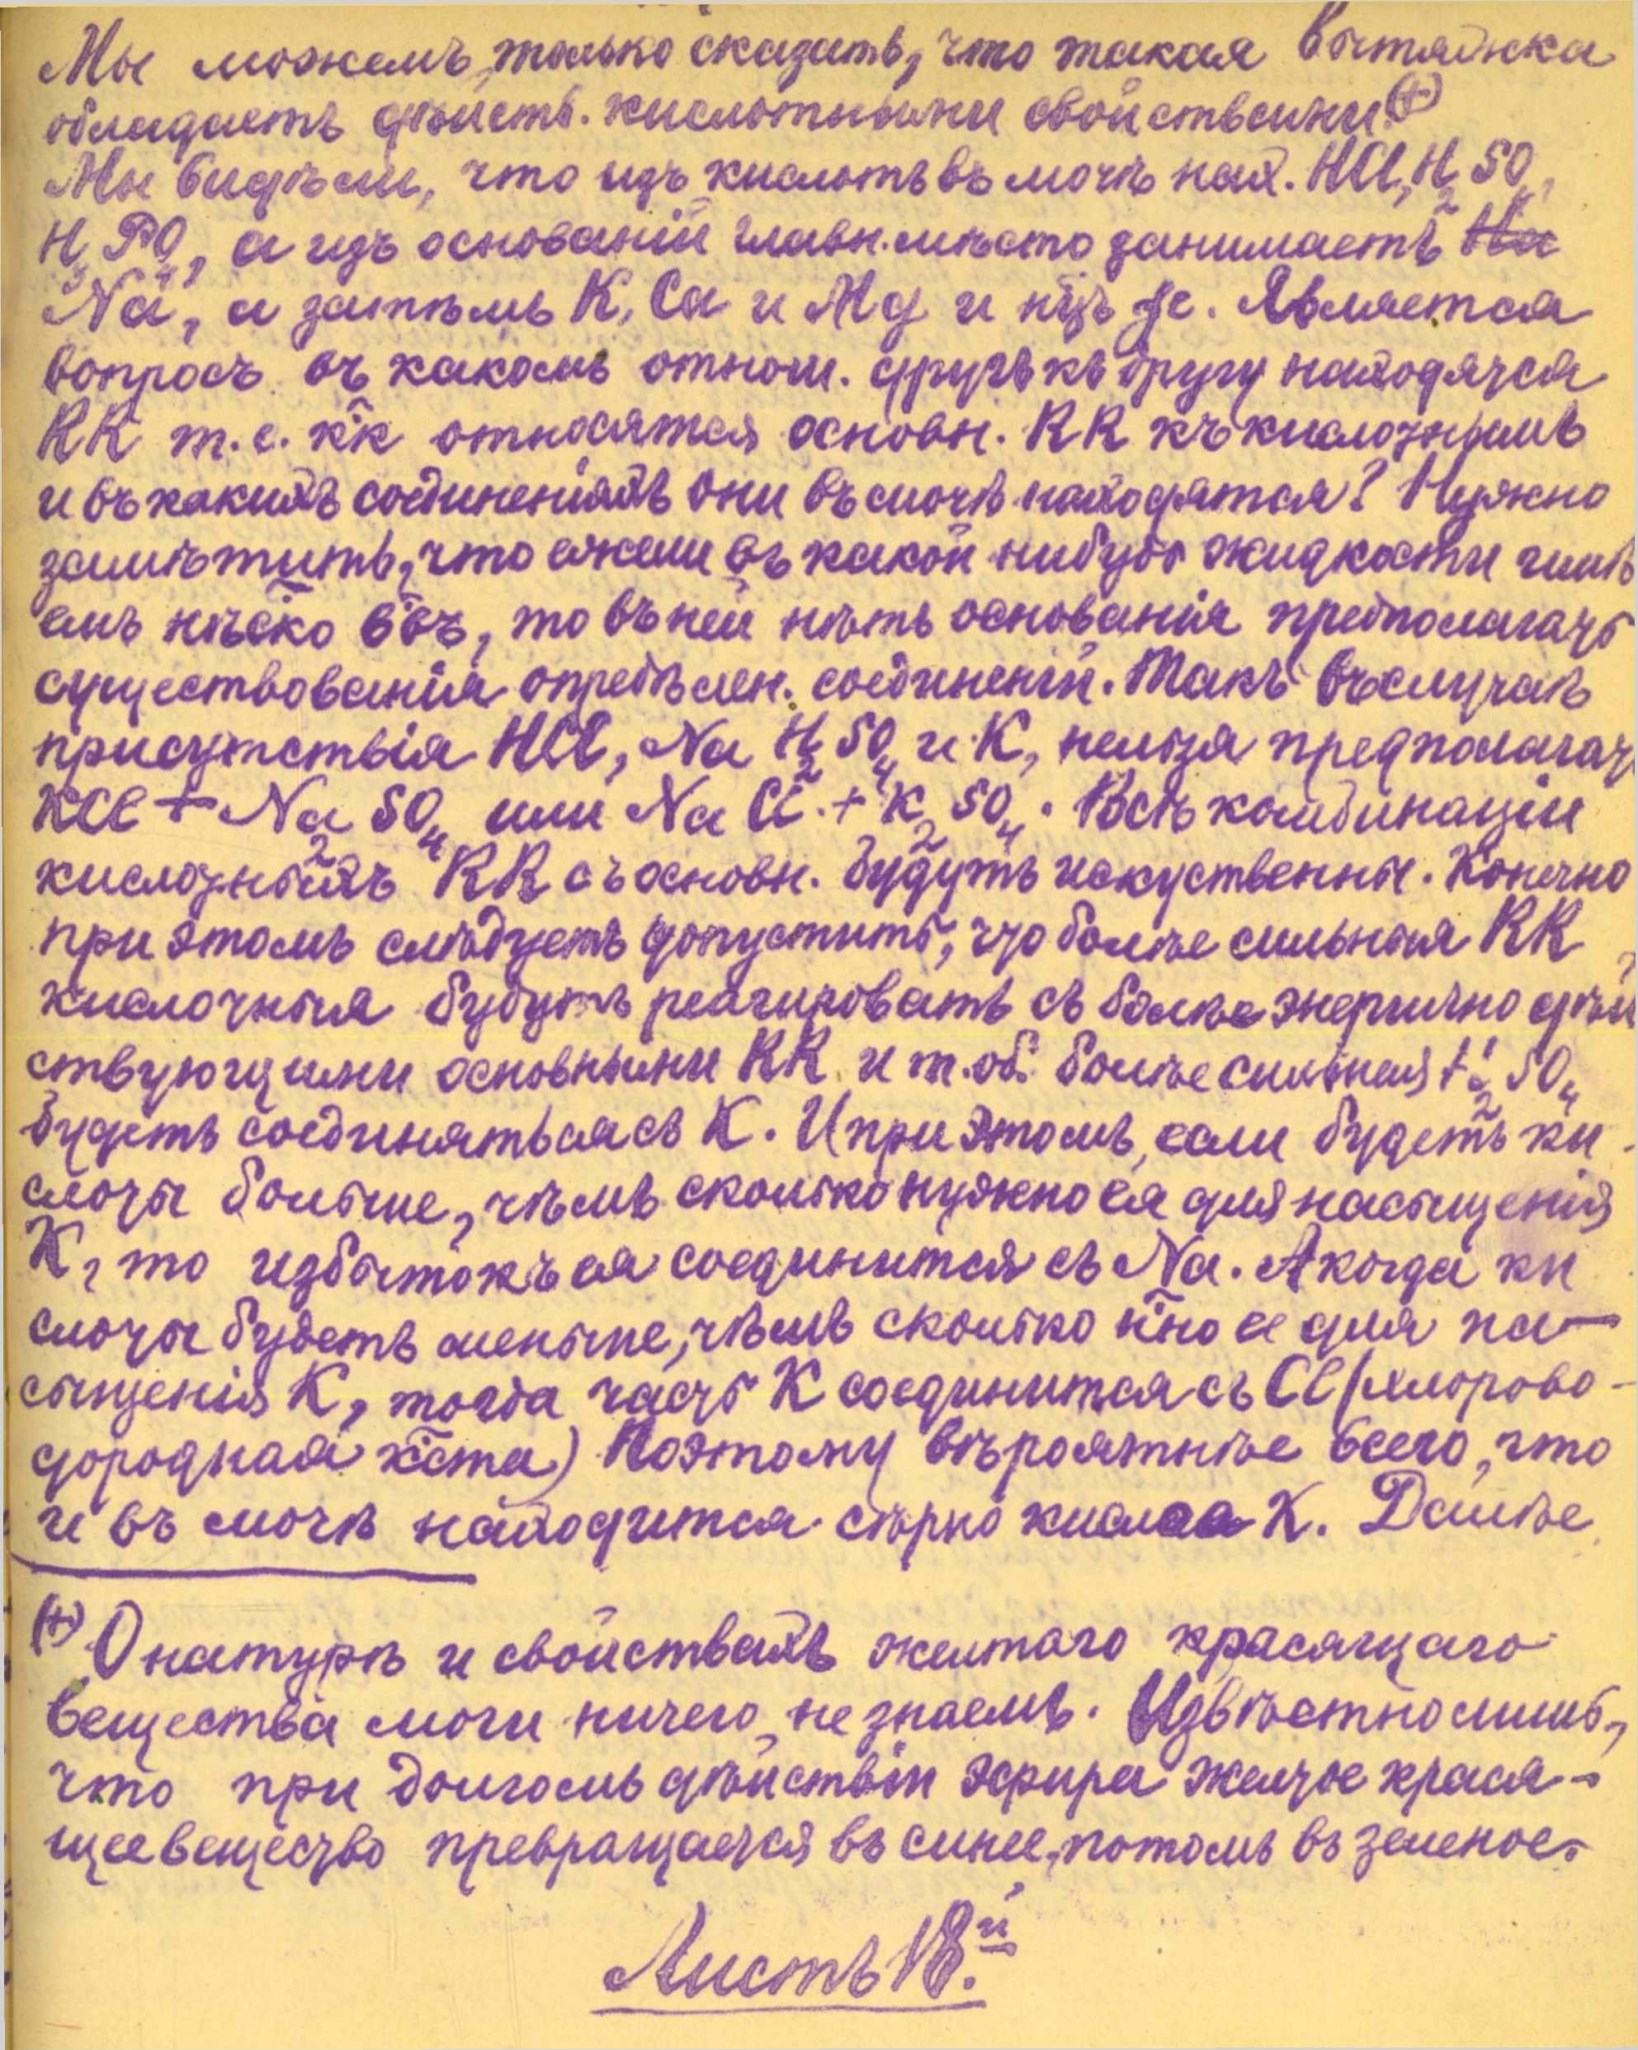 Мы можемъ только сказать, что такая вытяжка
обладаетъ дѣйств. кислотными свойствами. (+)
Мы видѣли, что изъ кислотъ въ мочѣ нах. HCl, H₂SO₄,
H₃PO₄, а изъ основаній главн. мѣсто занимаетъ На
Na, а затѣмъ K, Ca и Mg и Fe. Является
вопросъ въ какомъ отнош. другъ къ другу находятся
RR т.е. кк относятся основн. RR къ кислотнымъ
и въ какихъ соединеніяхъ они въ мочѣ находятся? Нужно
замѣтить, что ежели въ какой нибудь жидкости имѣ
емъ нѣско ввъ, то въ ней нѣтъ основанія предполагать
существованія опредѣлен. соединеній. Такъ въ случаѣ
присутствія HCl, Na H₂SO₄ и K, нельзя предполагать
KCl + Na₂SO₄ или NaCl + K₂SO₄. Всѣ комбинаціи
кислотныхъ RR съ основн. будутъ искуственны. Конечно
при этомъ слѣдуетъ допустить, что болѣе сильныя RR
кислотныя будутъ реагировать съ болѣе энергично дѣй
ствующими основными RR и т.об. болѣе сильная H₂SO₄
будетъ соединяться съ K. И при этомъ, если будетъ ки-
слоты больше, чѣмъ сколько нужно ея для насыщенія
K, то избытокъ ея соединится съ Na. А когда ки
слоты будетъ меньше, чѣмъ сколько нно ее для на-
сыщенія K, тогда часть K соединится съ Cl (хлорово-
дородная кста) Поэтому вѣроятнѣе всего, что
и въ мочѣ находится сѣрно кислая K. Далѣе
(+) О натурѣ и свойствахъ желтаго красящаго
вещества мочи ничего не знаемъ. Извѣстно лишь,
что при долгомъ дѣйствіи эфира желтое крася-
щее вещество превращается въ синее, потомъ въ зеленое.
Листъ 18.й